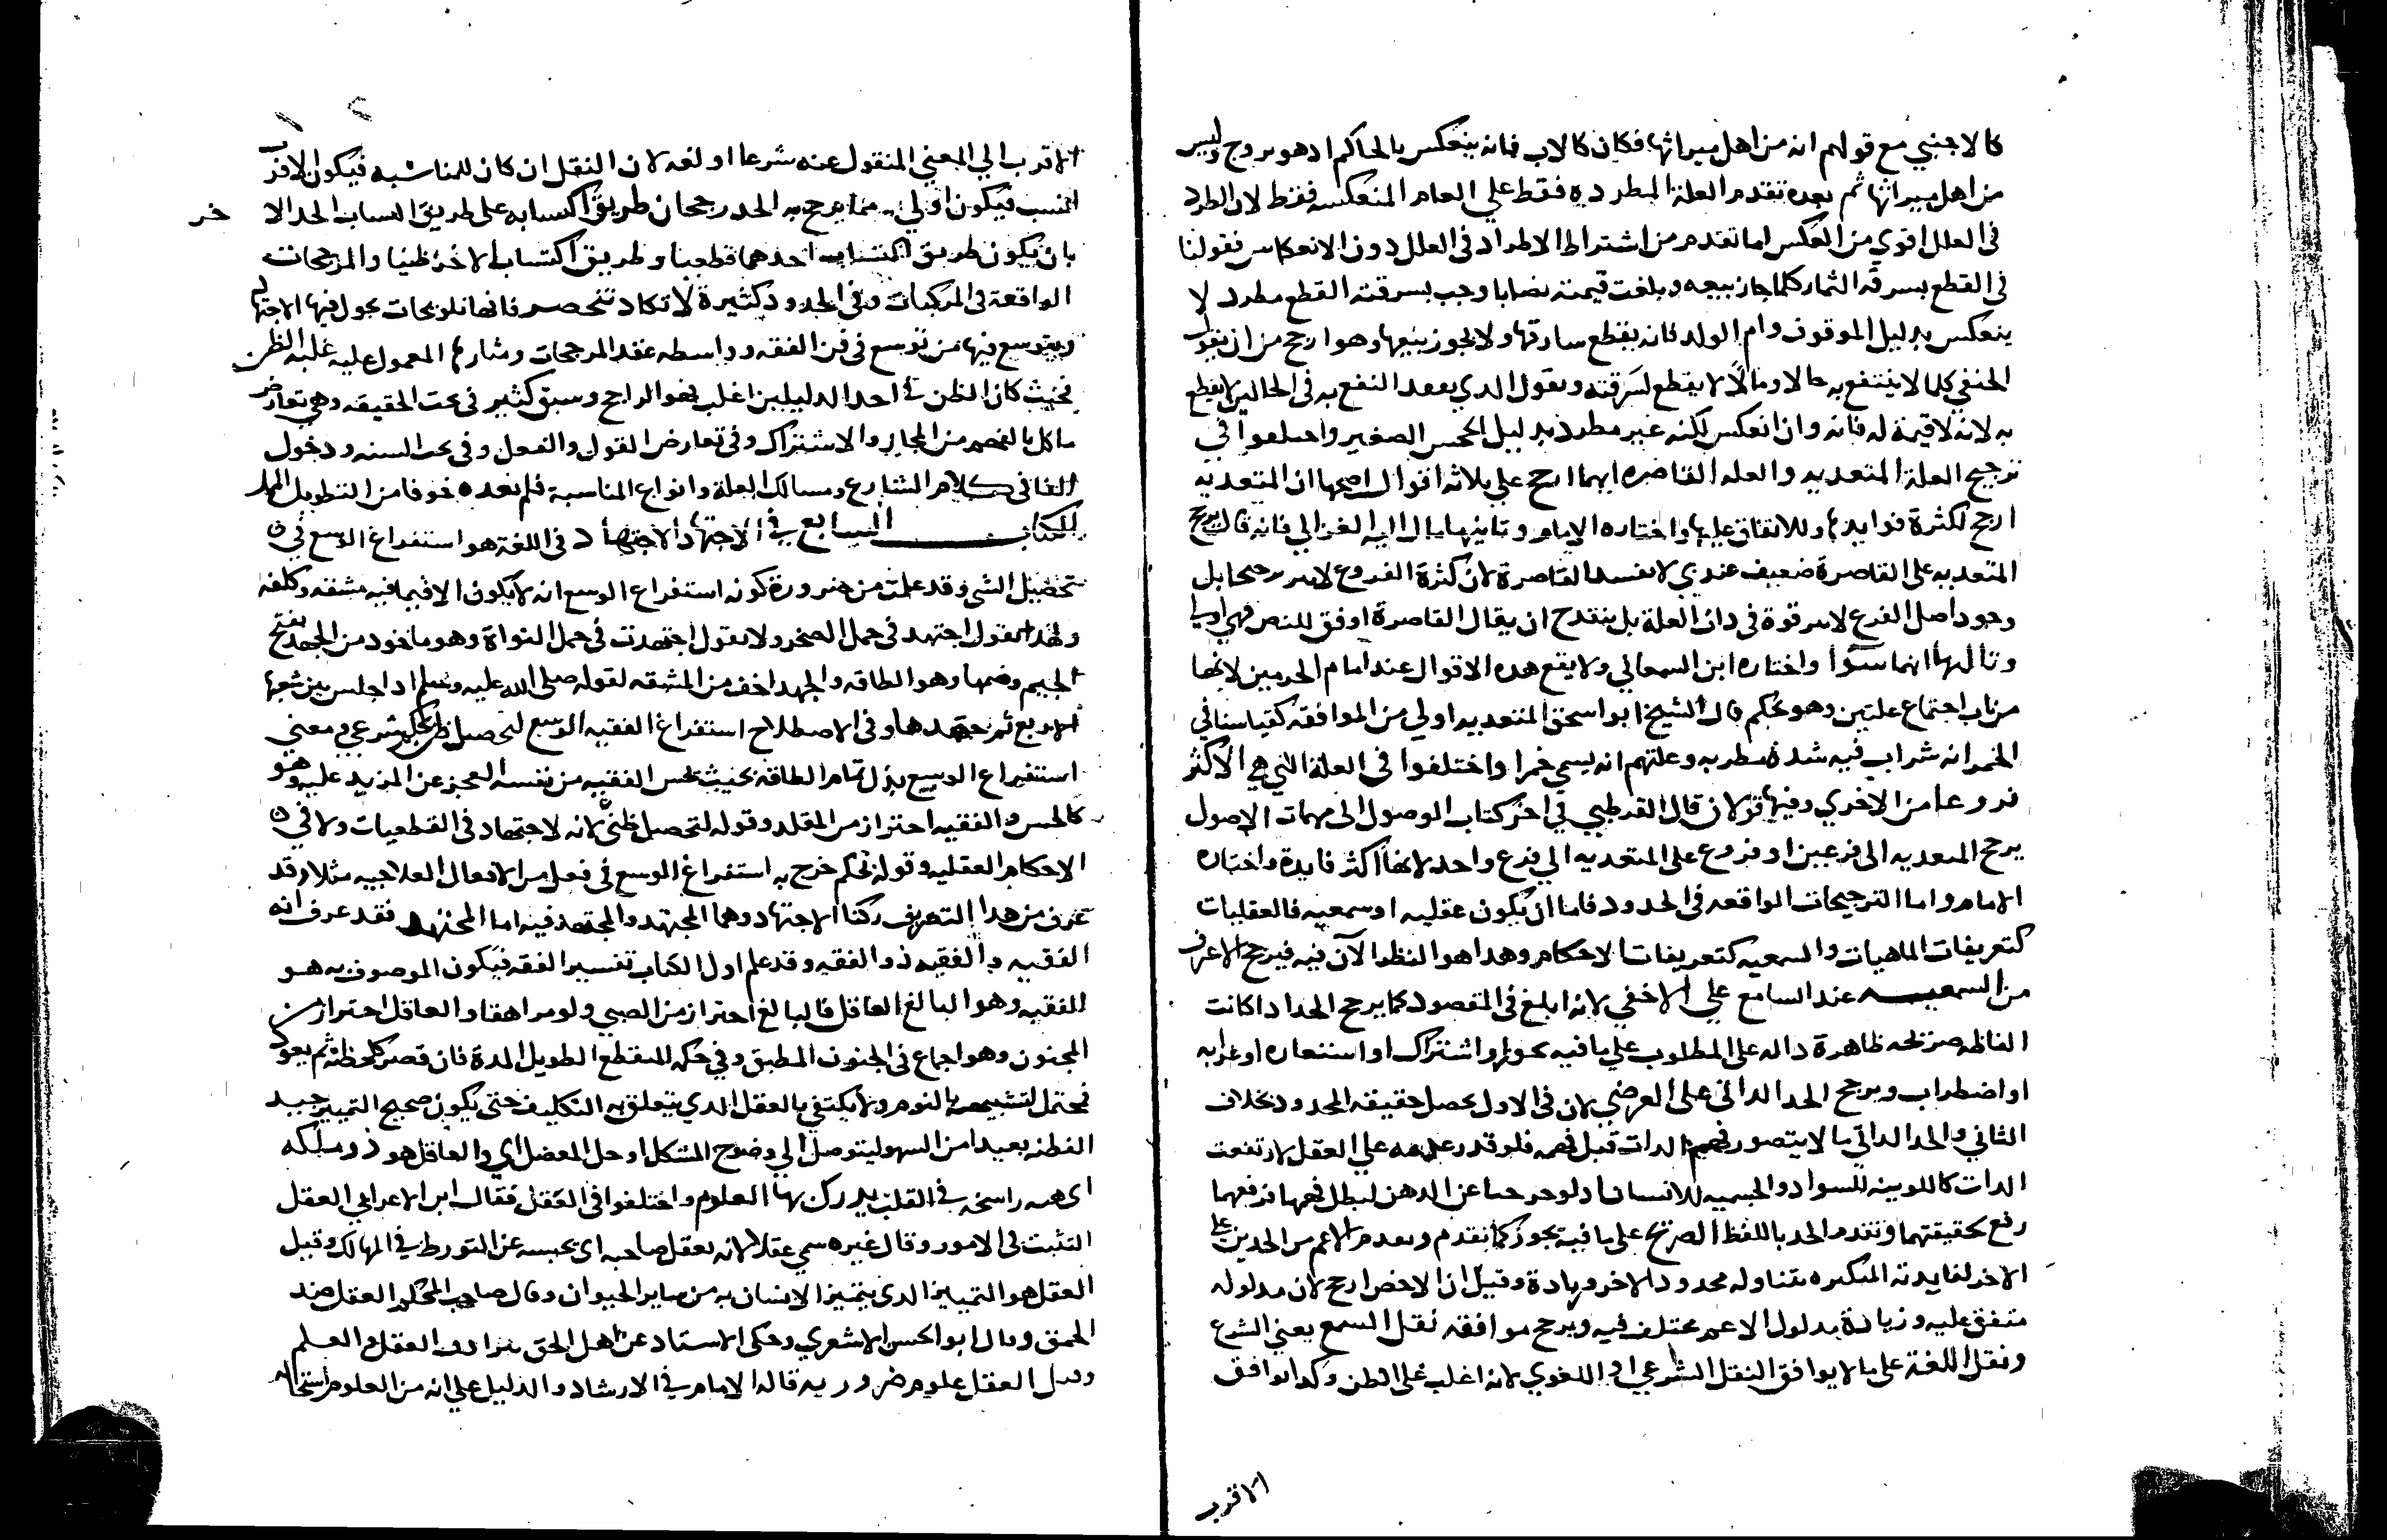 كالاجنبي مع قولهم انه من اهل ميراثها فكان كالاب فانه ينعكس بالحاكم اذ هو يزوج وليس
من اهل ميراثها ثم بعده تقدم العلة المطرده فقط علي العام المنعكسه فقط لان الطرد
في العلل اقوي من العكس لما تقدم من اشتراط الاطراد في العلل دون الانعكاس فقولنا
في القطع بسرقه الثمار كلما جاز بيعه وبلغت قيمته نصابا وجب بسرقته القطع مطرد لا
ينعكس بدليل الموقوف وام الولد فانه يقطع سارقها ولا يجوز بيعها وهو ارجح من ان يقول
الحنفي كلما لا ينتفع به حالا ومالا لا يقطع لسرقته ونقول الذي يفقد النفع به في الحالين لا يقطع
به لانه لا قيمة له فانه وان انعكس لكنه غير مطرد بدليل الحس الصغير واختلفوا في
ترجيح العلة المتعديه والعله القاصره ايهما ارجح علي ثلاثه اقوال اصحها ان المتعديه
ارجح لكثرة فوايدها وللاتفاق عليها واختاره الامام وثانيها مال اليه الغزالي فانه قال ترجيح
المتعديه على القاصرة ضعيف عندي لا تفسد القاصرة لان كثرة الفروع لا ترجحها بل
وجود اصل الفرع لا قوة في ذات العلة بل ينقدح ان يقال القاصرة اوفق للنص فهي اولي
وثالثها انهما سوا واختاره ابن السمعاني ولا يقع هذه الاقوال عند امام الحرمين لانها
من باب اجتماع علتين وهو تحكم قال الشيخ ابو اسحق المتعديه اولي من الموافقه كقياسنا في
الخمر انه شراب فيه شدة مطربه وعلتهم انه يسمي خمرا واختلفوا في العلة التي هي الاكثر
فروعا من الاخري وفيها قولان قال القرطبي في اخر كتاب الوصول الى مهمات الاصول
يرجح المتعديه الى فرعين او فروع على المتعديه الي فرع واحد لانها اكثر فايدة واختاره
الامام واما الترجيحات الواقعه في الحدود فاما ان يكون عقليه او سمعيه فالعقليات
كتعريفات الماهيات والسمعيه كتعريفات الاحكام وهذا هو النظر الآن فيه فيرجح الاعرف
من السمعيه عند السامع علي الاخفي لانه ابلغ في المقصود كما يرجح الحد اذا كانت
الفاظه صريحه ظاهرة داله على المطلوب علي ما فيه تجوز او اشتراك او استعاره او غرابه
او اضطراب ويرجح الحد الذاتي على العرضي لان في الاول يحصل حقيقه المحدود بخلاف
الثاني والحد الذاتي ما لا يتصور فهم الذات قبل فهمه فلو قدر عدمه علي العقل لارتفعت
الذات كاللونيه للسواد والجسميه للانسان اذ لو خرجتا عن الذهن لبطل فهمها فرفعهما
رفع لحقيقتهما وتقدم الحد باللفظ الصريح على ما فيه تجوز كما تقدم ويقدم الاعم من الحدين علي
الاخر لفايدته المتكثره بتناوله محدود الاخر وزيادة وقيل ان الاخص ارجح لان مدلوله
متفق عليه وزيادة مدلول الاعم مختلف فيه ويرجح موافقه نقل السمع يعني الشرع
ونقل اللغة على ما لا يوافق النقل الشرعي او اللغوي لانه اغلب على الظن وكذا يوافق
الاقرب
الاقرب الي المعني المنقول عنه شرعا او لغه لان النقل ان كان للمناسبه فيكون الاقرب
انسب فيكون اولي ومما يرجح به الحد رجحان طريق اكتسابه على طريق اكتساب الحد الاخر
بان يكون طريق اكتساب احدهما قطعيا وطريق اكتساب الاخر ظنيا والمرجحات
الواقعة في المركبات وفي الحدود كثيرة لا تكاد تنحصر فانها تلويحات يجول فيها الاجتهاد
ويتوسع فيها من توسع في فن الفقه وواسطه عقد المرجحات ومثارها المعمول عليه غلبه الظن
فحيث كان الظن في احد الدليلين اغلب فهو الراجح وسبق كثير في بحث الحقيقه وهي تعارض
ما كل بالتخصيص من المجاز والاشتراك وفي تعارض القول والفعل وفي بحث السنه ودخول
الفا في كلام الشارع ومسالك العلة وانواع المناسبة فلم نعده خوفا من التطويل الممل
الكتاب السابع في الاجتهاد الاجتهاد في اللغة هو استفراغ الوسع في
تحصيل الشي وقد علمت من ضرورة كونه استفراغ الوسع انه لا يكون الا فيما فيه مشقه وكلفه
ولهذا تقول اجتهد في حمل الصخر ولا تقول اجتهدت في حمل النواة وهو ماخوذ من الجهد بفتح
الجيم وضمها وهو الطاقه والجهد اخف من المشقه لقوله صلى الله عليه وسلم اذا جلس بين شعبها
الاربع ثم جهدها وفي الاصطلاح استفراغ الفقيه الوسع لتحصيل ظن بحكم شرعي ومعني
استفراغ الوسع بذل تمام الطاقه بحيث يحس الفقيه من نفسه العجز عن المزيد عليه وهو
كالجنس والفقيه احتراز من المقلد وقوله لتحصيل ظن لانه لا اجتهاد في القطعيات ولا في
الاحكام العقليه وقوله بحكم خرج به استفراغ الوسع في فعل من الافعال العلاجيه مثلا وقد
عرف من هذا التعريف ركنا الاجتهاد وهما المجتهد والمجتهد فيه اما المجتهد فقد عرف انه
الفقيه والفقيه ذو الفقه وقد علم اول الكتاب تفسير الفقه فيكون الموصوف به هو
الفقيه وهو البالغ العاقل فالبالغ احتراز من الصبي ولو مراهقا والعاقل احتراز من
المجنون وهو اجماع في الجنون المطبق وفي حكمه المتقطع الطويل المدة فان قصر كلحظة ثم يعود
فيحتمل تشبيهه بالنوم ولا يكتفي بالعقل الذي يتعلق به التكليف حتى يكون صحيح التمييز جيد
الفطنه بعيدا من السهو ليتوصل الي وضوح المشكل او حل المعضل اي والعاقل هو ذو ملكه
اي هيه راسخه في القلب يدرك بها العلوم واختلفوا في العقل فقال ابن الاعرابي العقل
التثبت في الامور وقال غيره سمي عقلا لانه يعقل صاحبه اي يحبسه عن التورط في المهالك وقيل
العقل هو التمييز الذي يتميز الانسان به من ساير الحيوان وقال صاحب المحكم العقل ضد
الحمق وقال ابو الحسن الاشعري وحكى الاستاد عن اهل الحق ترادف العقل والعلم
وقيل العقل علوم ضروريه قاله الامام في الارشاد والدليل علي انه من العلوم استحاله